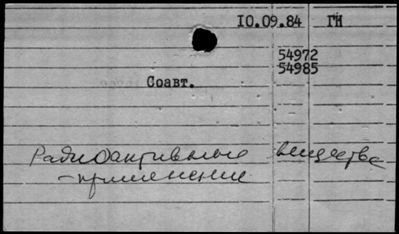 10.09.84 ГИ
54972
54985
Соавт.
Радиоактивные вещества
-применение